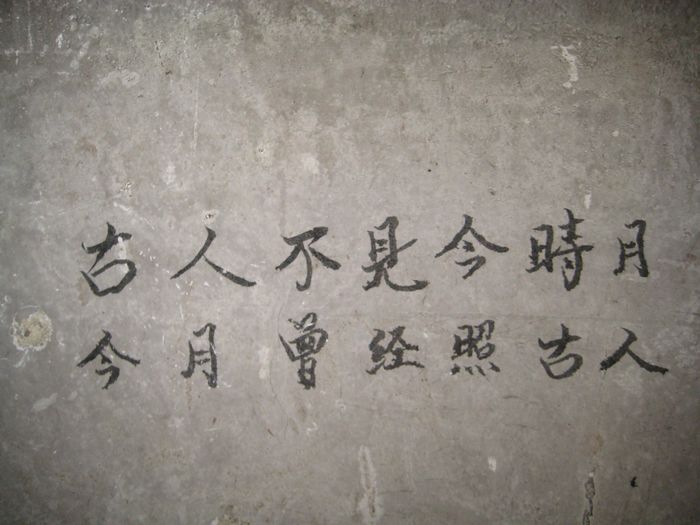 古人不見今時月
今月曾经照古人